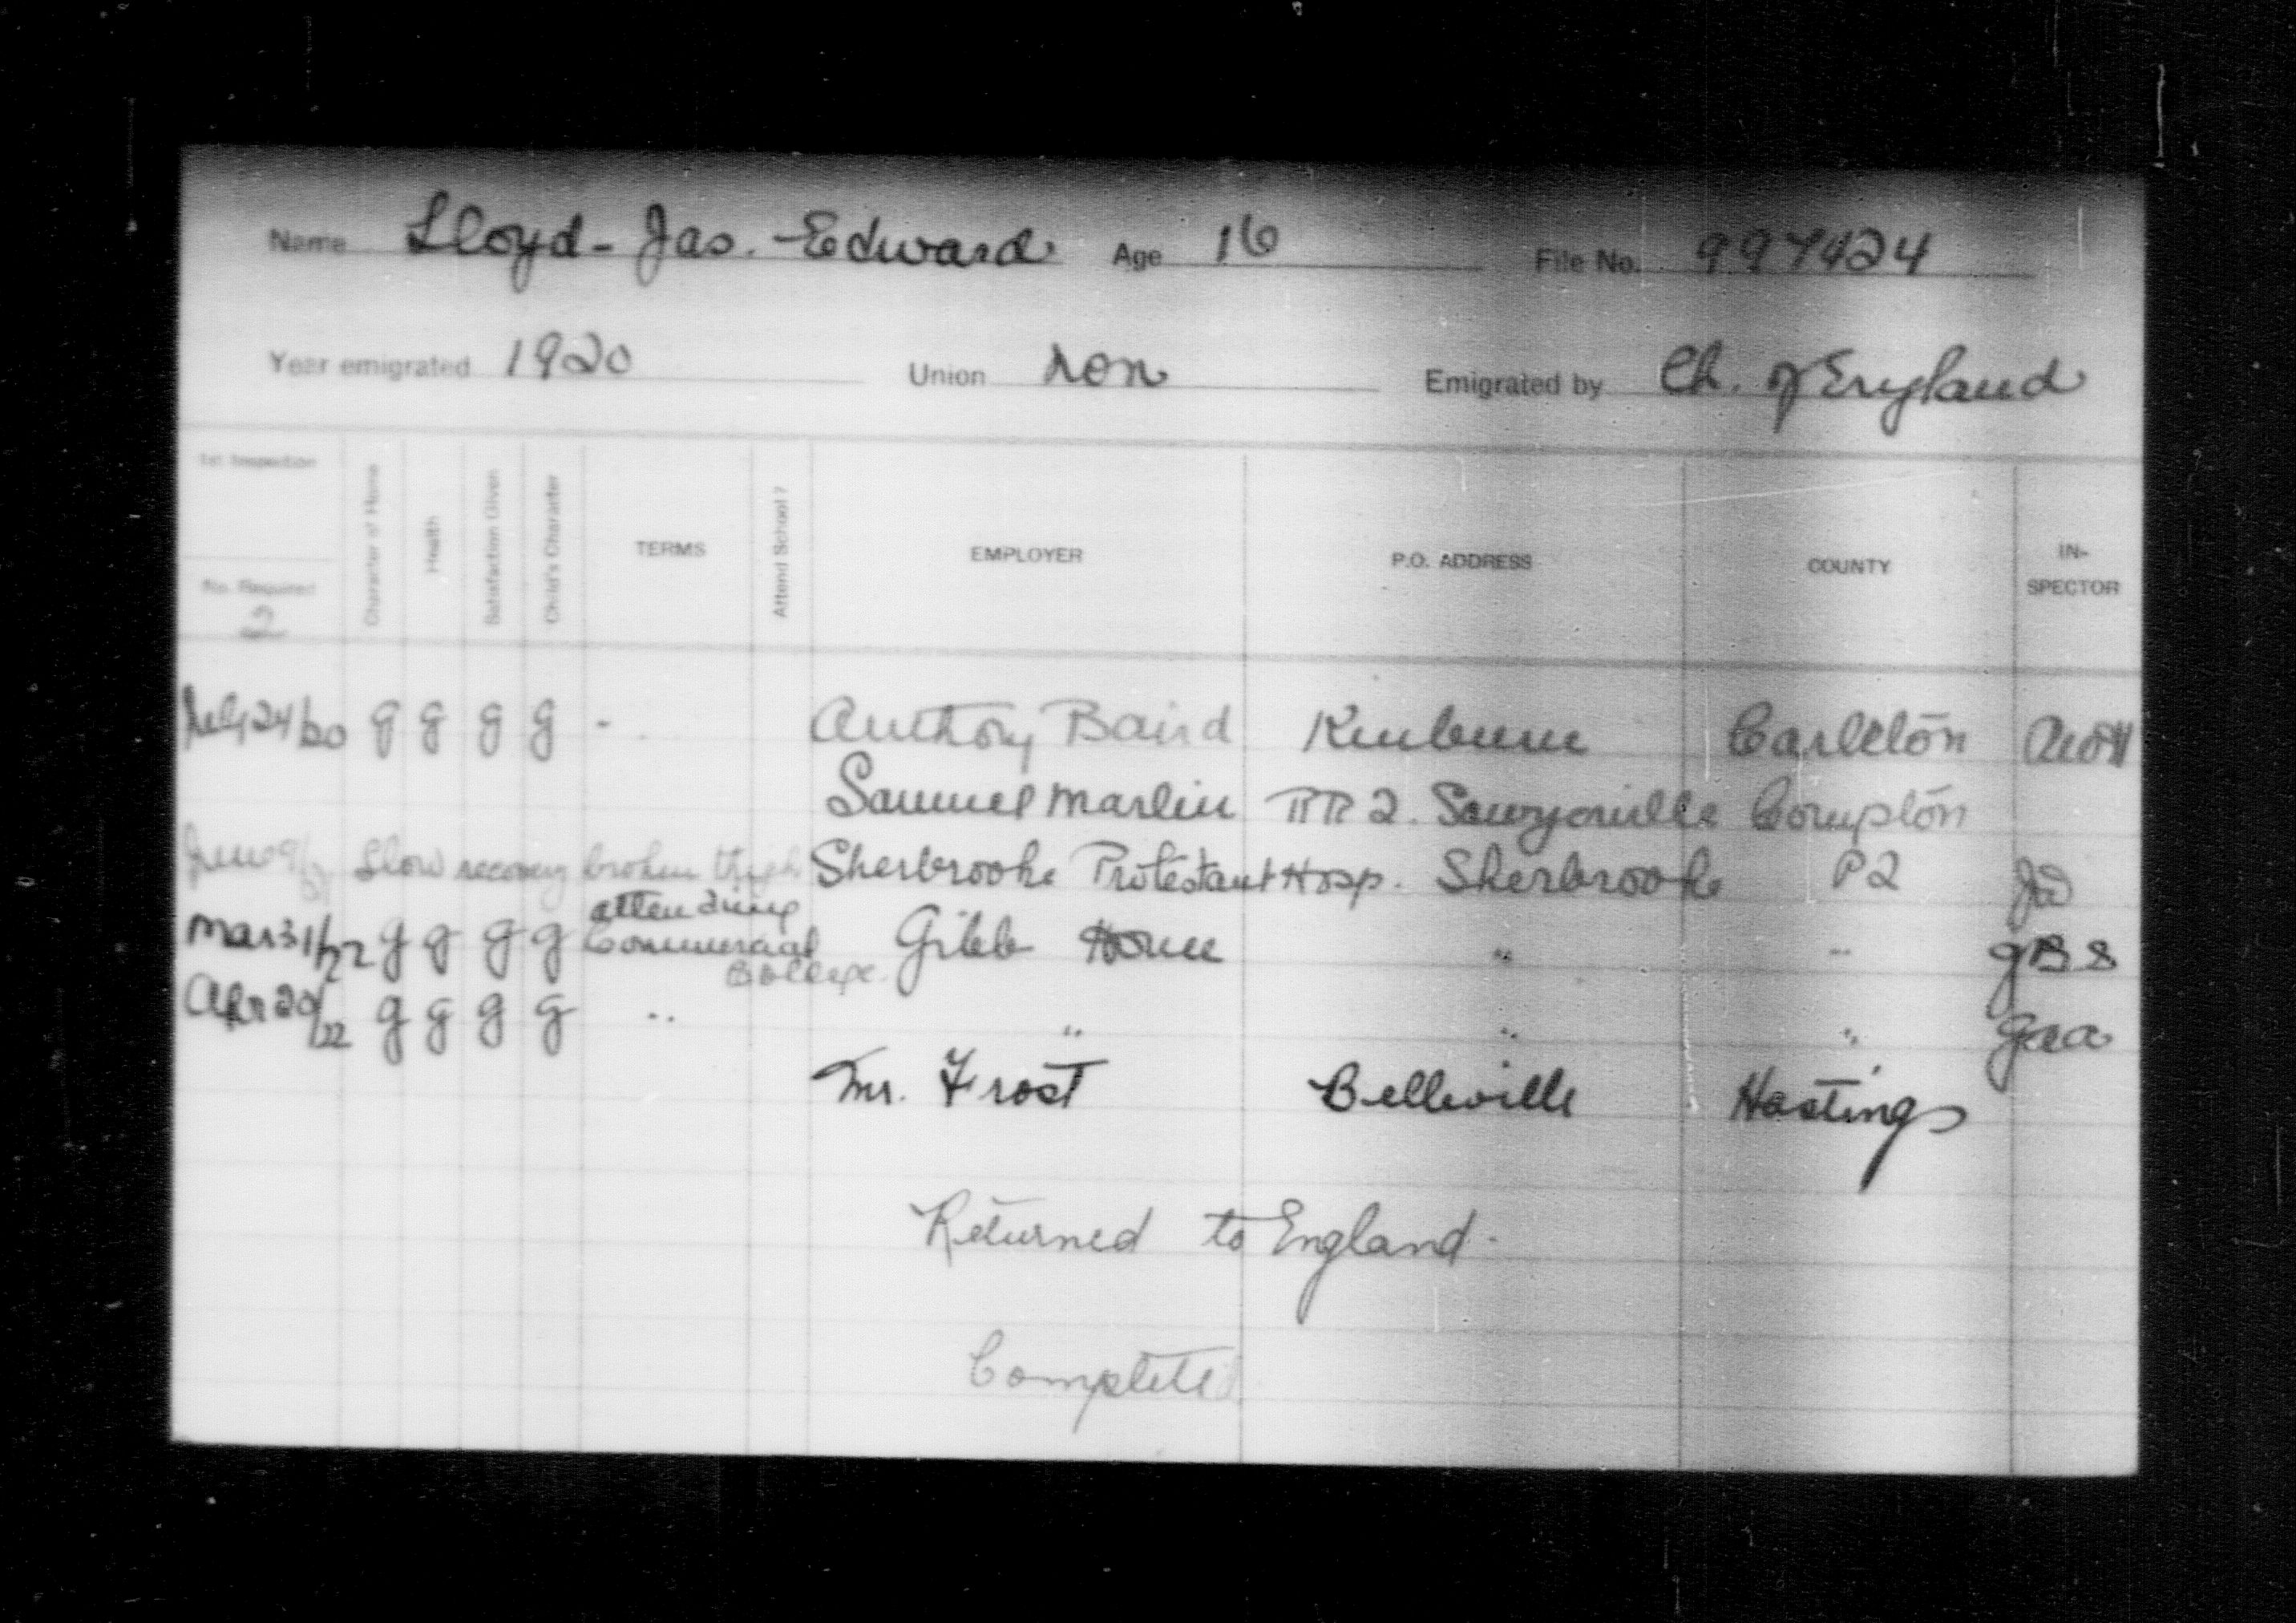 Name Lloyd - Jas. Edward Age 16 File No. 997424
Year emigrated 1920 Union non Emigrated by Ch. of England
1st Inspection
No. Required
2
Character of Home
Health
Satisfaction Given
Child's Character
TERMS
Attend School?
EMPLOYER
P.O. ADDRESS
COUNTY
IN-
SPECTOR
24/20 g g g g - Anthony Baird Kinburn Carleton
Samuel Marlin RR 2. Sawyerville Compton
June 9/21 Slow recovery broken thigh Sherbrooke Protestant Hosp. Sherbrooke P2
attending
Mar 31/22 g g g g Commercial Gibb Home " " GBS
College
Apr 20/22 g g g g " " " " Gaa
Mr. Frost Belleville Hastings
Returned to England.
Completed